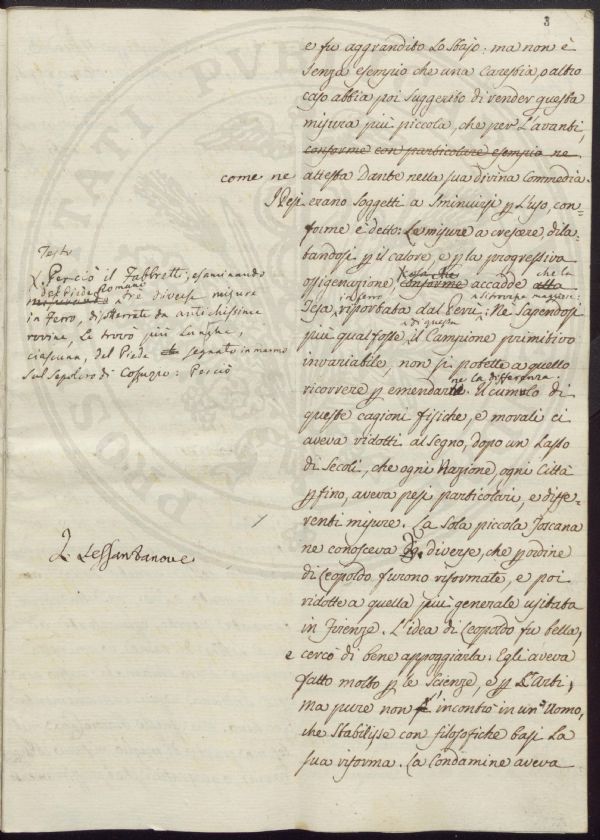 8
e fu aggrandito lo stajo: ma non è
senza esempio che una Carestia, o altro
caso abbia poi suggerito di render questa
misura più piccola, che per l'avanti,
conforme con particolare esempio ne
come ne attesta Dante nella sua divina Commedia.
I Pesi erano soggetti a sminuirsi p l'uso, con-
forme è detto: Le misure a crescere, dila-
tandosi p il calore, e p la progressiva
ossigenazione, conforme accadde alla che la
Tesa, in ferro, riportata dal Perù: si ritrovava maggiore: Nè sapendosi
più qual fosse di questa il Campione primitivo
invariabile, non si potette a quello
ricorrere p emendarne la differenza. Il cumolo di
queste cagioni fisiche, e morali ci
aveva ridotti al segno, dopo un lasso
di secoli, che ogni Nazione, ogni Città
p fino, aveva pesi particolari, e diffe-
renti misure. La sola piccola Toscana
ne conosceva diverse, che p ordine
di Leopoldo furono riformate, e poi
ridotte a quella più generale usitata
in Firenze. L'idea di Leopoldo fu bella,
e cercò di bene appoggiarla. Egli aveva
fatto molto p le scienze, e p l'Arti;
ma pure non s'incontrò in un Uomo,
che stabilisse con filosofiche basi la
sua riforma. La Condamine aveva
Testo
X Perciò il Fabbretti, esaminando
del Piede Romano tre diverse misure
in ferro, disotterrate da antichissime
rovine, le trovò più lunghe,
ciascuna, del Piede segnato in marmo
sul sepolcro di Cossuzio: Perciò
2 Lessantanove